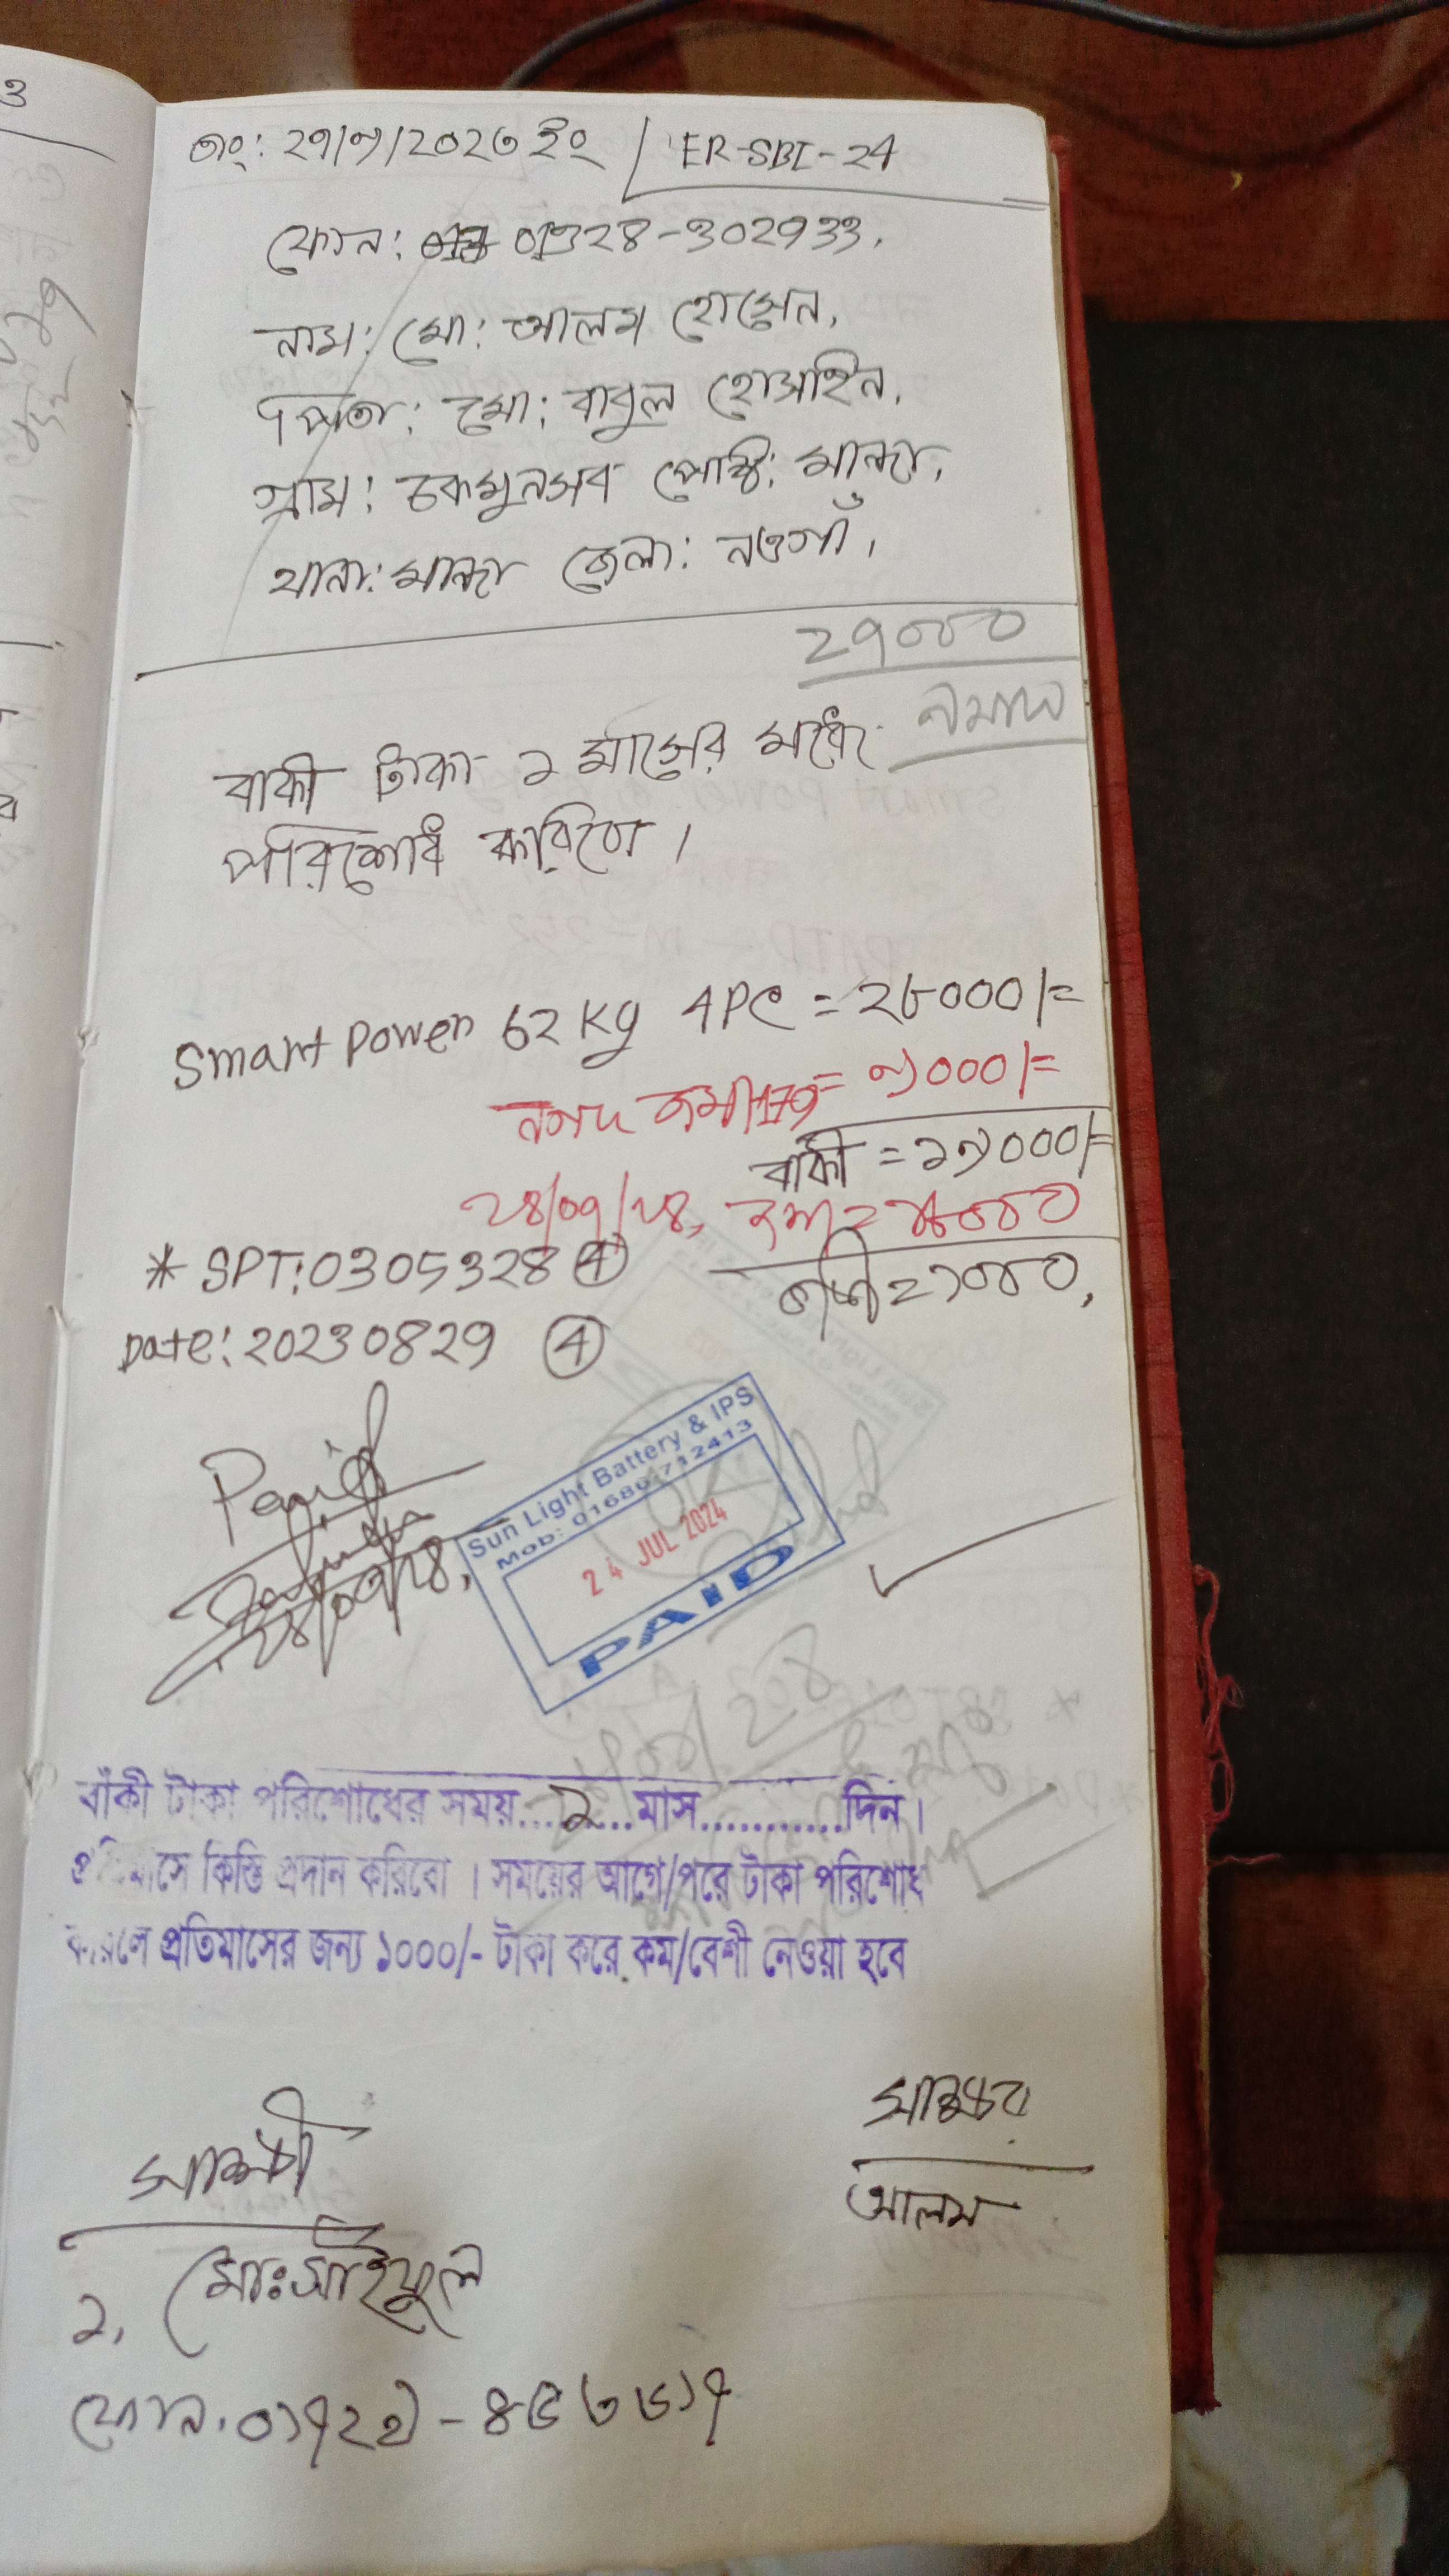 তাং: ২৭/৯/২০২৩ ইং | ER-SBI-24
ফোন: 01328-302933,
নাম: মো: আলম হোসেন,
পিতা: মো: বাবুল হোসাইন,
গ্রাম: চকমুনসব পোষ্ট: মান্দা,
থানা: মান্দা জেলা: নওগাঁ,
২৭০০০
নমাস
বাকী টাকা ২ মাসের মধ্যে
পরিশোধ করিবো।
Smart power 62 Kg 4 PC = ২৮০০০/=
নগদ জমা = ৯০০০/=
বাকী = ১৯০০০/=
২৪/০৭/২৪, জমা = ১৮০০০
বাকী = ১০০০,
* SPT: 0305328 (4)
Date: 20230829 (4)
Paid
২৪/০৭/২৪,
Sun Light Battery & IPS
Mob: 01680-712413
24 JUL 2024
PAID
বাঁকী টাকা পরিশোধের সময়...২...মাস............দিন।
প্রতিমাসে কিস্তি প্রদান করিবো। সময়ের আগে/পরে টাকা পরিশোধ
করিলে প্রতিমাসের জন্য ১০০০/- টাকা করে কম/বেশী নেওয়া হবে
স্বাক্ষর
আলম
সাক্ষী
১, মোঃ সাইফুল
ফোন. ০১৭২১-৪৫৩৬১৭